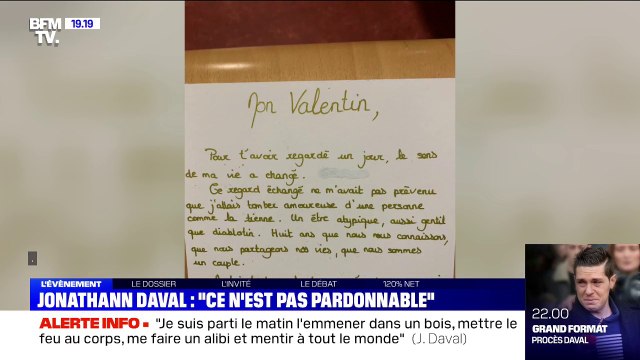 BFM
TV.
19.19
Mon Valentin,
Pour t'avoir regardé un jour, le sens
de ma vie a changé.
Ce regard échangé ne m'avait pas prévenu
que j'allais tomber amoureuse d'une personne
comme la tienne. Un être atypique, aussi gentil
que diablotin. Huit ans que nous nous connaissons,
que nous partageons nos vies, que nous sommes
un couple.
L'ÉVÈNEMENT
LE DOSSIER
L'INVITÉ
LE DÉBAT
120% NET
JONATHANN DAVAL : "CE N'EST PAS PARDONNABLE"
ALERTE INFO "Je suis parti le matin l'emmener dans un bois, mettre le
feu au corps, me faire un alibi et mentir à tout le monde" (J. Daval)
22.00
GRAND FORMAT
PROCÈS DAVAL